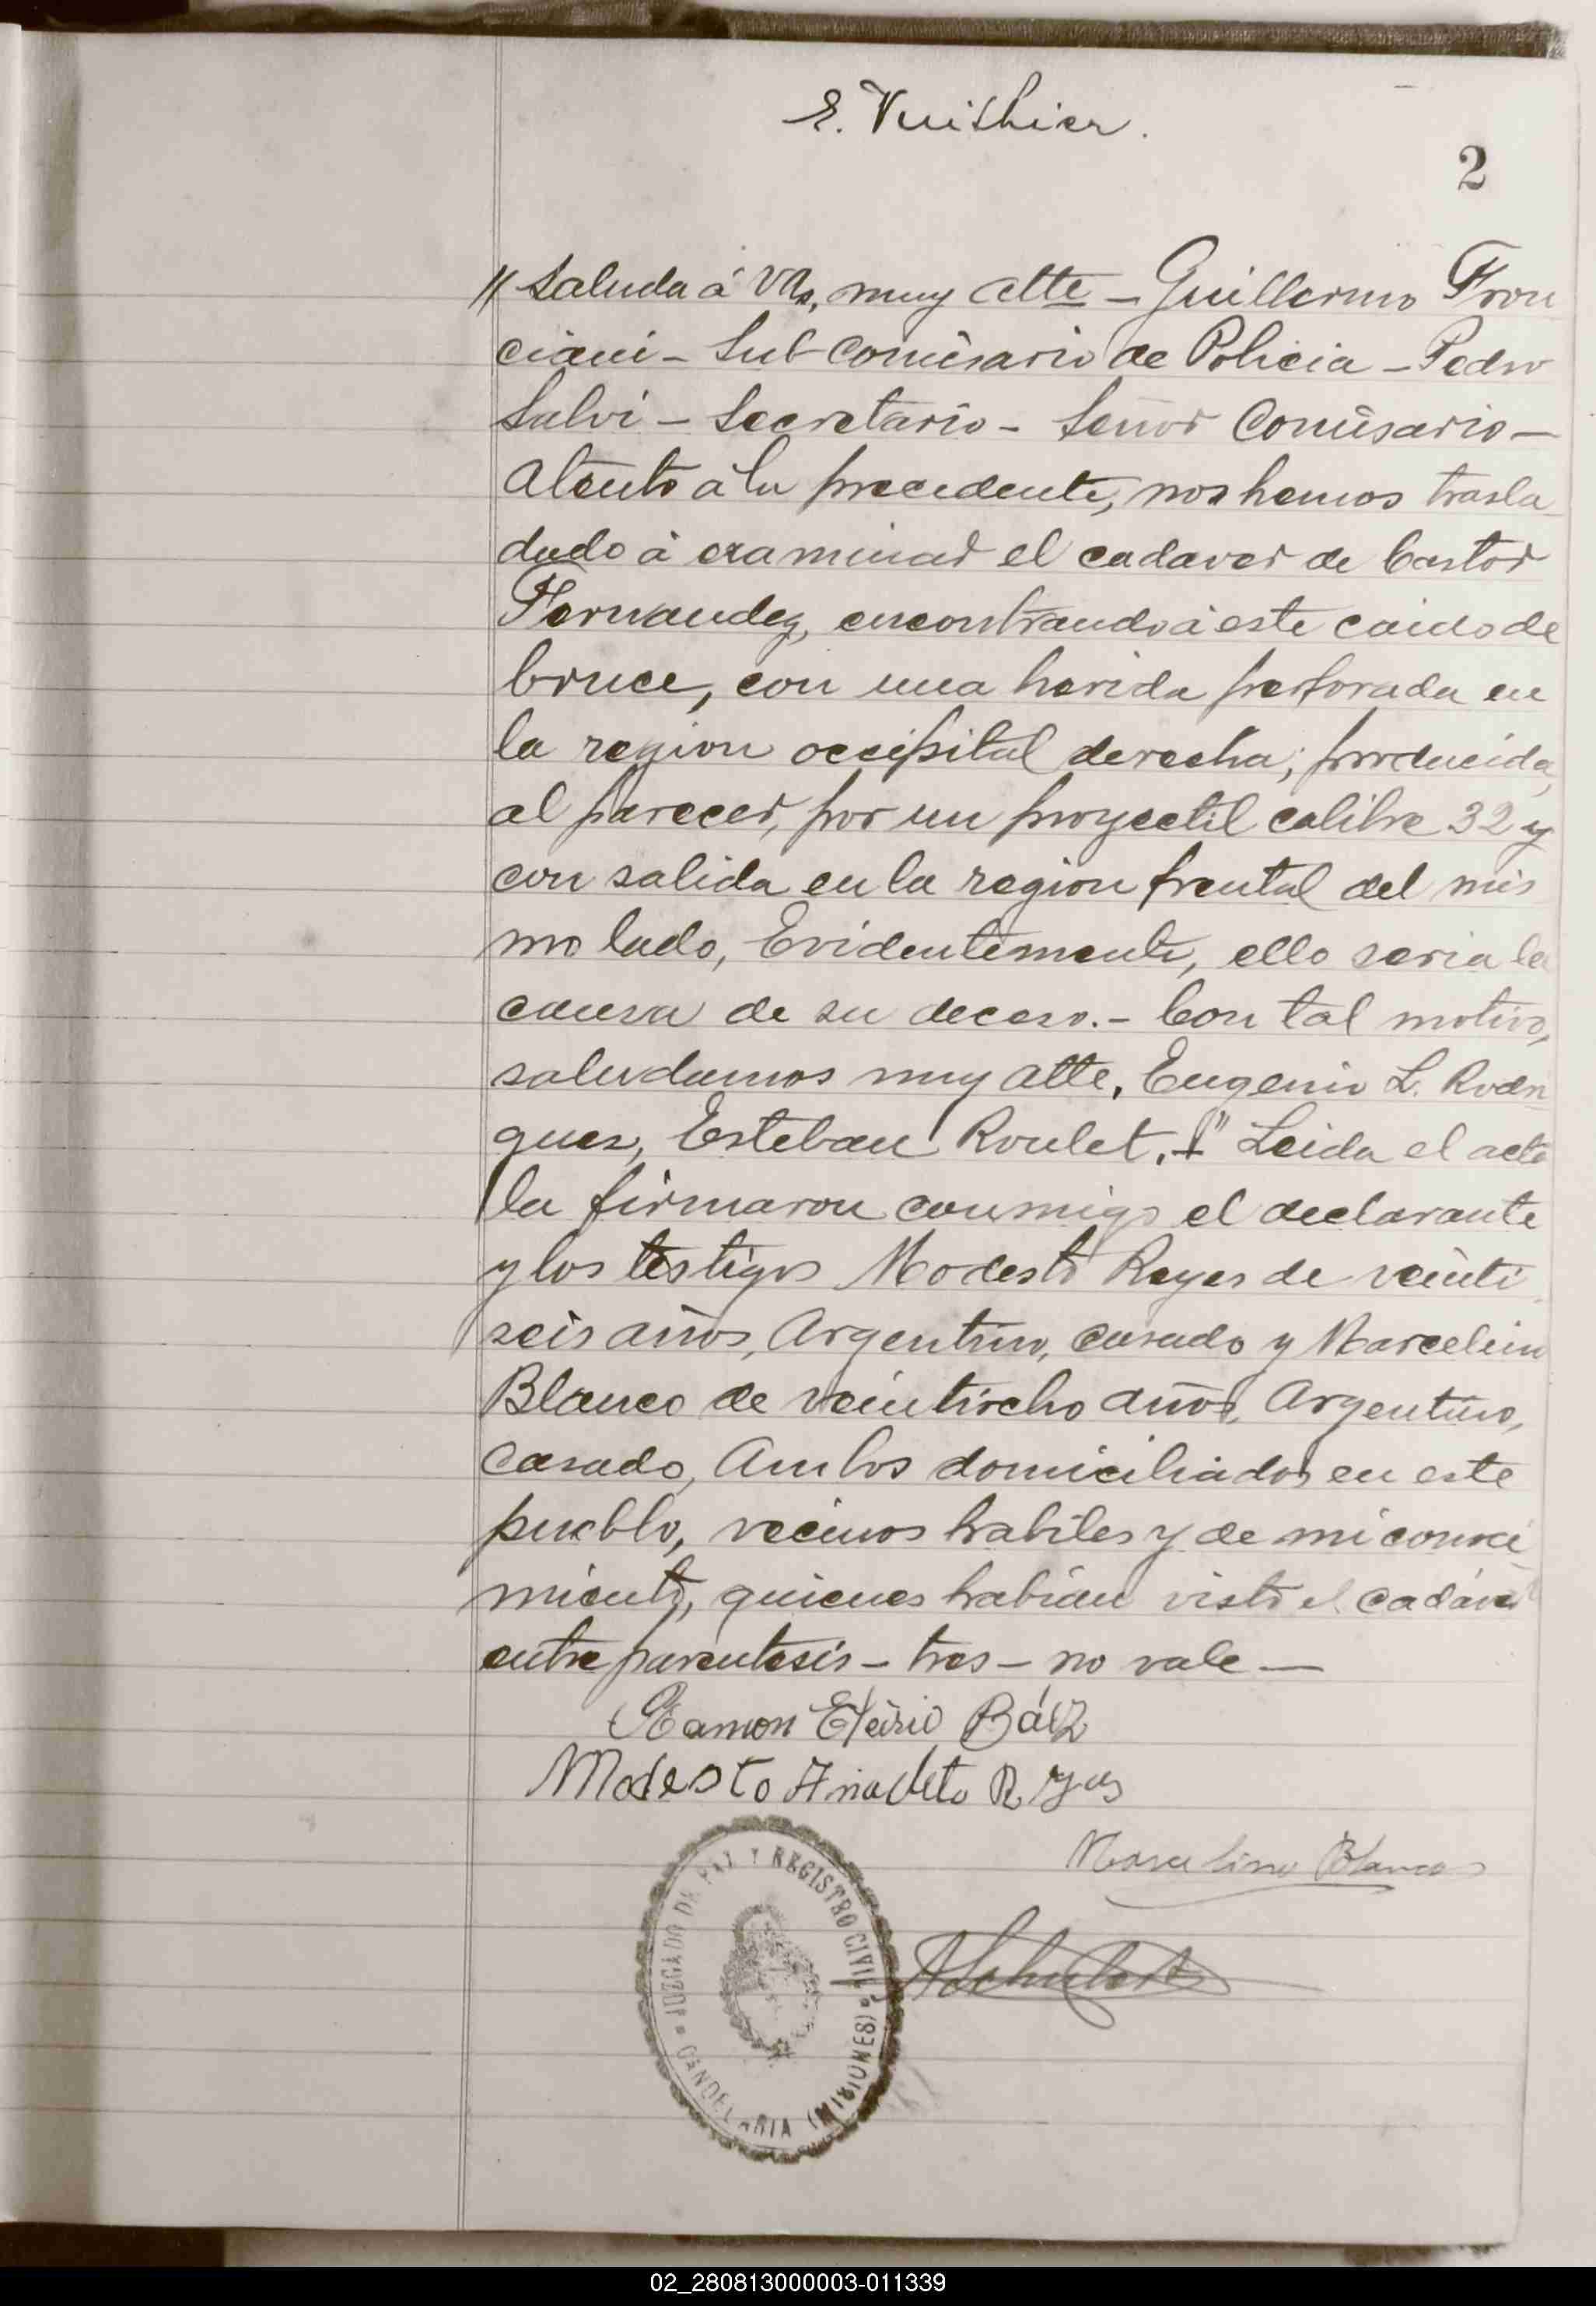 E. Vuithier.
2
// Saluda á Vds, muy atte – Guillermo Fron
ciani – Sub-Comisario de Policia – Pedro
Salvi – Secretario – Señor Comisario –
Atento á la precedente, nos hemos trasla
dado á examinar el cadaver de Castor
Fernandez, encontrando á este caido de
bruce, con una herida perforada en
la region occipital derecha, producida,
al parecer, por un proyectil calibre 32 y
con salida en la region frental del mis
mo lado, Evidentemente, ello seria la
causa de su deceso. – Con tal motivo,
saludamos muy atte, Eugenio L. Rodri
guez, Esteban Roulet. " Leida el acta
la firmaron conmigo el declarante
y los testigos Modesto Reyes de veinti
seis años, Argentino, casado y Marcelino
Blanco de veintiocho años, Argentino,
casado, Ambos domiciliados en este
pueblo, vecinos habiles y de mi conoci
miento, quienes habian visto el cadáver
entre parentesis – tres – no vale –
Ramon Báez
Modesto Anacleto Reyes
Marcelino Blanco
JUZGADO DE PAZ Y REGISTRO CIVIL
CANDELARIA (MISIONES)
02_280813000003-011339